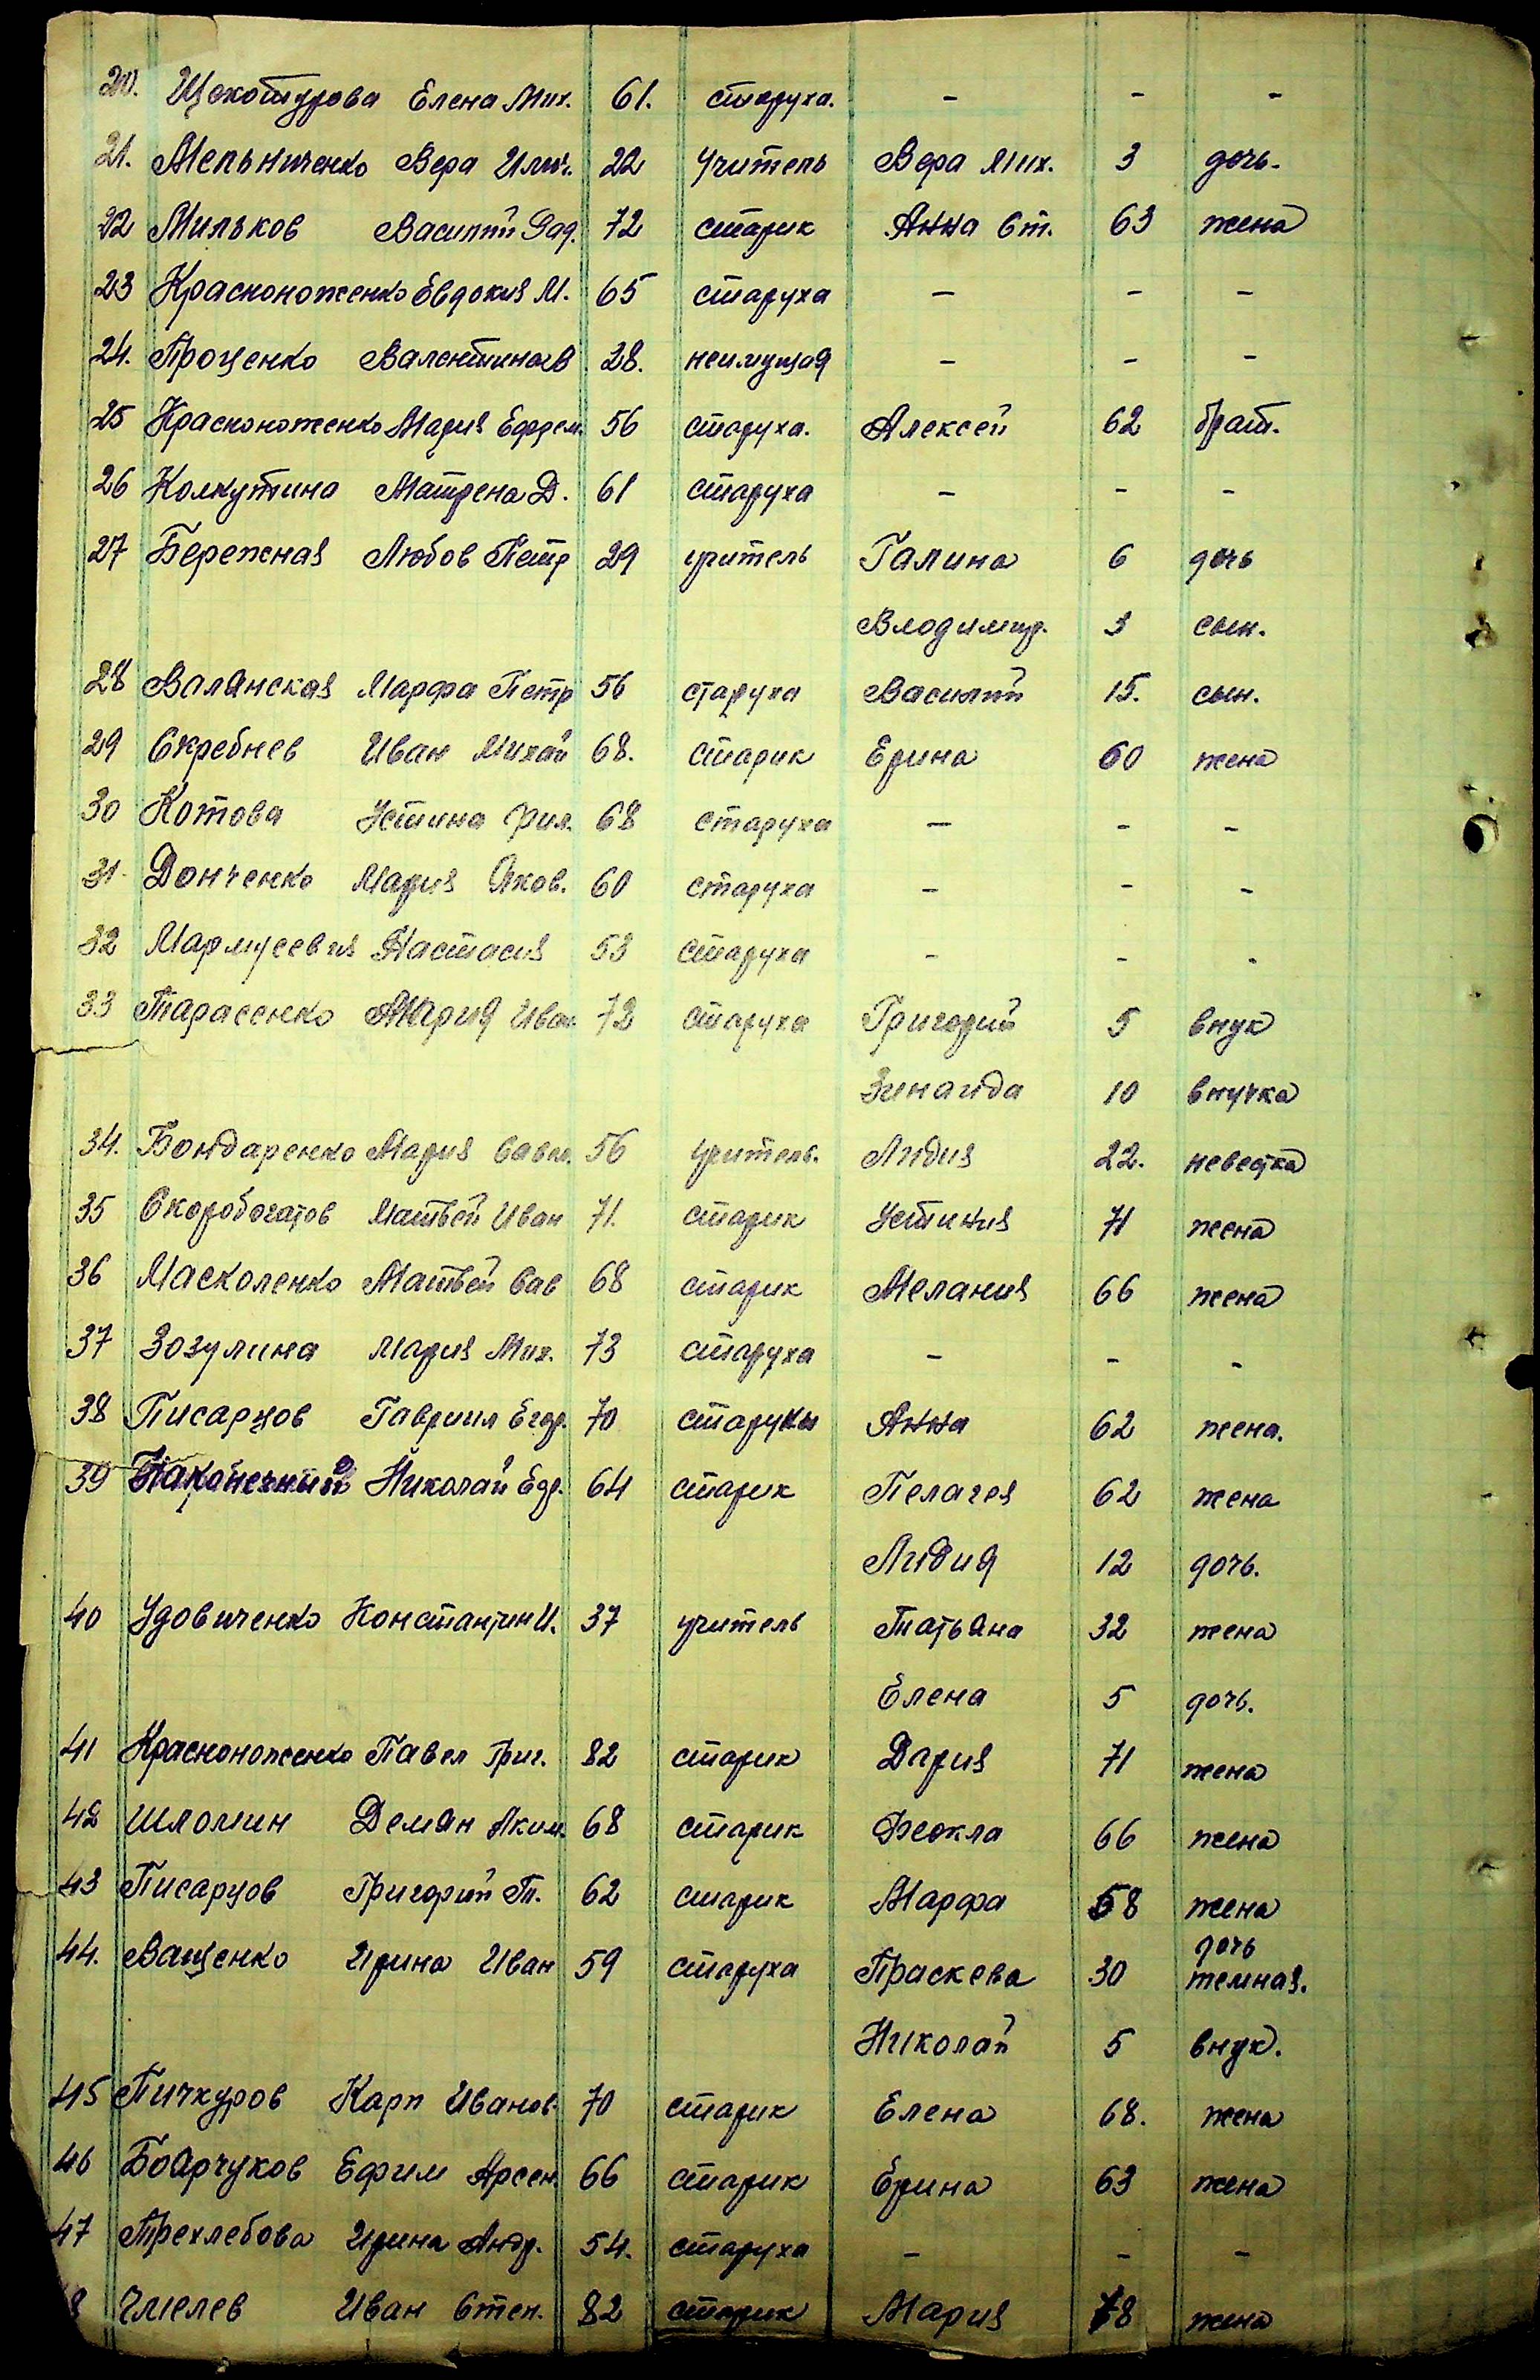 20. Щекотурова Елена Мих. 61. старуха. - - -
21. Мельниченко Вера Илич. 22 учитель Вера Мих. 3 дочь.
22 Мильков Василий 72 старик Анна Ст. 63 жена
23 Красноноженко Евдокия М. 65 старуха - - -
24. Проценко Валентина В 28. неимущая - - -
25 Красноноженко Мария Ефрем. 56 старуха. Алексей 62 брат.
26 Колкутина Матрена Д. 61 старуха - - -
27 Бережная Любов Петр 29 учитель Галина 6 дочь
Владимир. 3 сын.
28 Валянская Марфа Петр 56 старуха Василий 15. сын.
29 Скребнев Иван Михай 68. старик Ерина 60 жена
30 Котова Устина Фил. 68 старуха - - -
31. Донченко Мария Яков. 60 старуха - - -
32 Настасия 53 старуха - - -
33 Тарасенко Мария Иван. 72 старуха Григорий 5 внук
Зинаида 10 внучка
34. Бондаренко Мария Савел. 56 учитель. Лидия 22. невестка
35 Скоробогатов Матвей Иван 71. старик Устиния 71 жена
36 Масколенко Матвей Сав 68 старик Мелания 66 жена
37 Зозулина Мария Мих. 73 старуха - - -
38 Писарцов Гавриил Егор. 70 Анна 62 жена.
39 Наконечный Николай Егр. 64 старик Пелагея 62 жена
Лидия 12 дочь.
40 Удовиченко Константин И. 37 учитель Татьяна 32 жена
Елена 5 дочь.
41 Красноноженко Павел Григ. 82 старик Дария 71 жена
42 Шломин Демян Аким. 68 старик Феокла 66 жена
43 Писарцов Григорий Т. 62 старик Марфа 58 жена
44. Ващенко Ирина Иван 59 старуха Праскева 30 дочь темная.
Николай 5 внук.
45 Пичкуров Карп Иванов. 70 старик Елена 68. жена
46 Боярчуков Ефим Арсен. 66 старик Ерина 63 жена
47 Трехлебова Ирина Андр. 54. старуха - - -
8 Чмелев Иван Степ. 82 старик Мария 78 жена